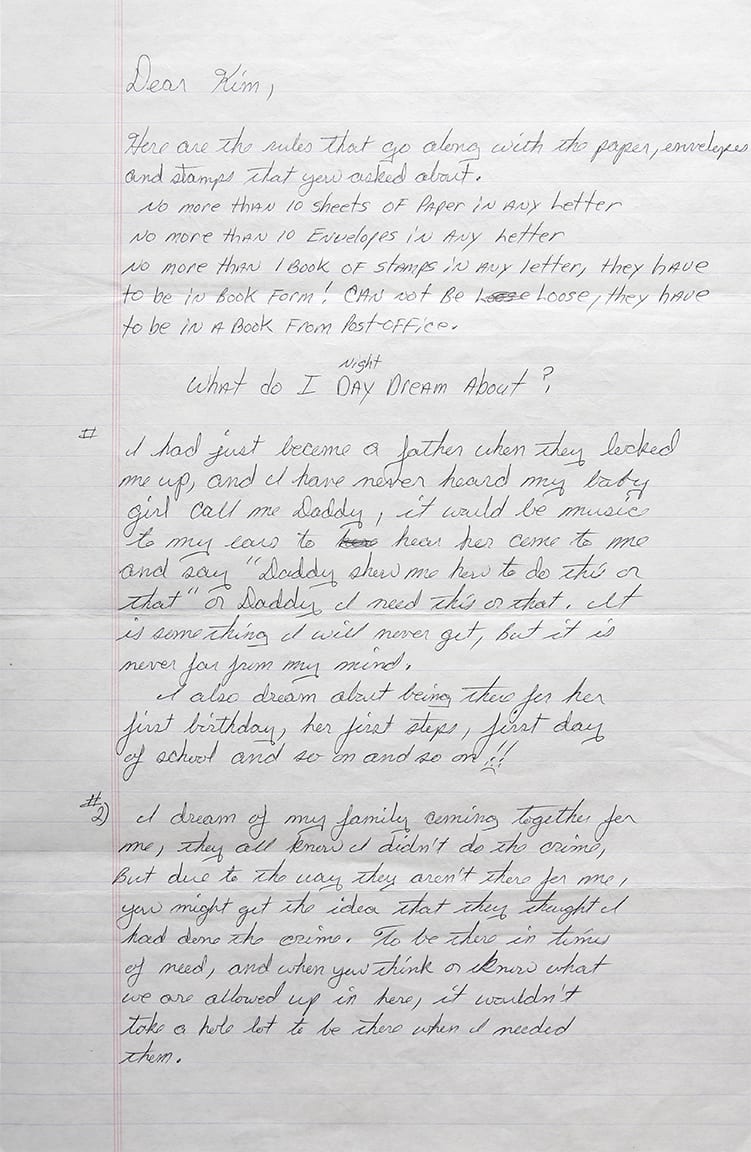 Dear Kim,
Here are the rules that go along with the paper, envelopes
and stamps that you asked about.
No more than 10 sheets of Paper in Any Letter
No more than 10 Envelopes in Any Letter
No more than 1 Book of stamps in Any letter, they have
to be in Book Form! Can not Be Loose, they have
to be in a Book From Post-office.
Night
What do I Day Dream About?
#
I had just become a father when they locked
me up, and I have never heard my baby
girl call me Daddy, it would be music
to my ears to hear her come to me
and say "Daddy show me how to do this or
that" or Daddy I need this or that. It
is something I will never get, but it is
never far from my mind.
I also dream about being there for her
first birthday, her first steps, first day
of school and so on and so on!!
#2) I dream of my family coming together for
me, they all know I didn't do the crime,
But due to the way they aren't there for me,
you might get the idea that they thought I
had done the crime. To be there in times
of need, and when you think or know what
we are allowed up in here, it wouldn't
take a hole lot to be there when I needed
them.